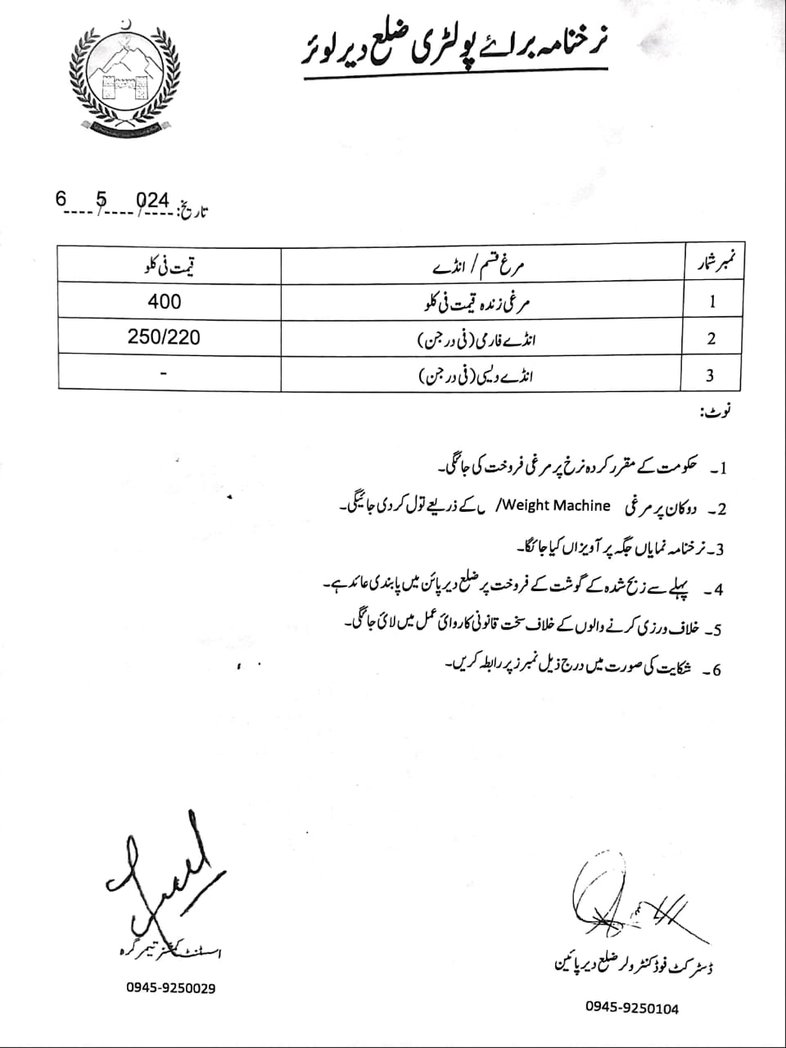 نرخنامہ برائے پولٹری ضلع دیر لوئر
تاریخ: 6/5/024
نمبر شمار مرغ قسم / انڈے قیمت فی کلو
1 مرغی زندہ قیمت فی کلو 400
2 انڈے فارمی (فی درجن) 250/220
3 انڈے دیسی (فی درجن) -
نوٹ:
1۔ حکومت کے مقرر کردہ نرخ پر مرغی فروخت کی جائگی۔
2۔ دوکان پر مرغی Weight Machine/ کے ذریعے تول کر دی جائیگی۔
3۔ نرخنامہ نمایاں جگہ پر آویزاں کیا جائگا۔
4۔ پہلے سے زبح شدہ کے گوشت کے فروخت پر ضلع دیر پائن میں پابندی عائد ہے۔
5۔ خلاف ورزی کرنے والوں کے خلاف سخت قانونی کاروائی عمل میں لائی جائگی۔
6۔ شکایت کی صورت میں درج ذیل نمبرز پر رابطہ کریں۔
ڈسٹرکٹ فوڈ کنٹرولر ضلع دیر پائین
0945-9250104
اسسٹنٹ کمشنر تیمرگرہ
0945-9250029